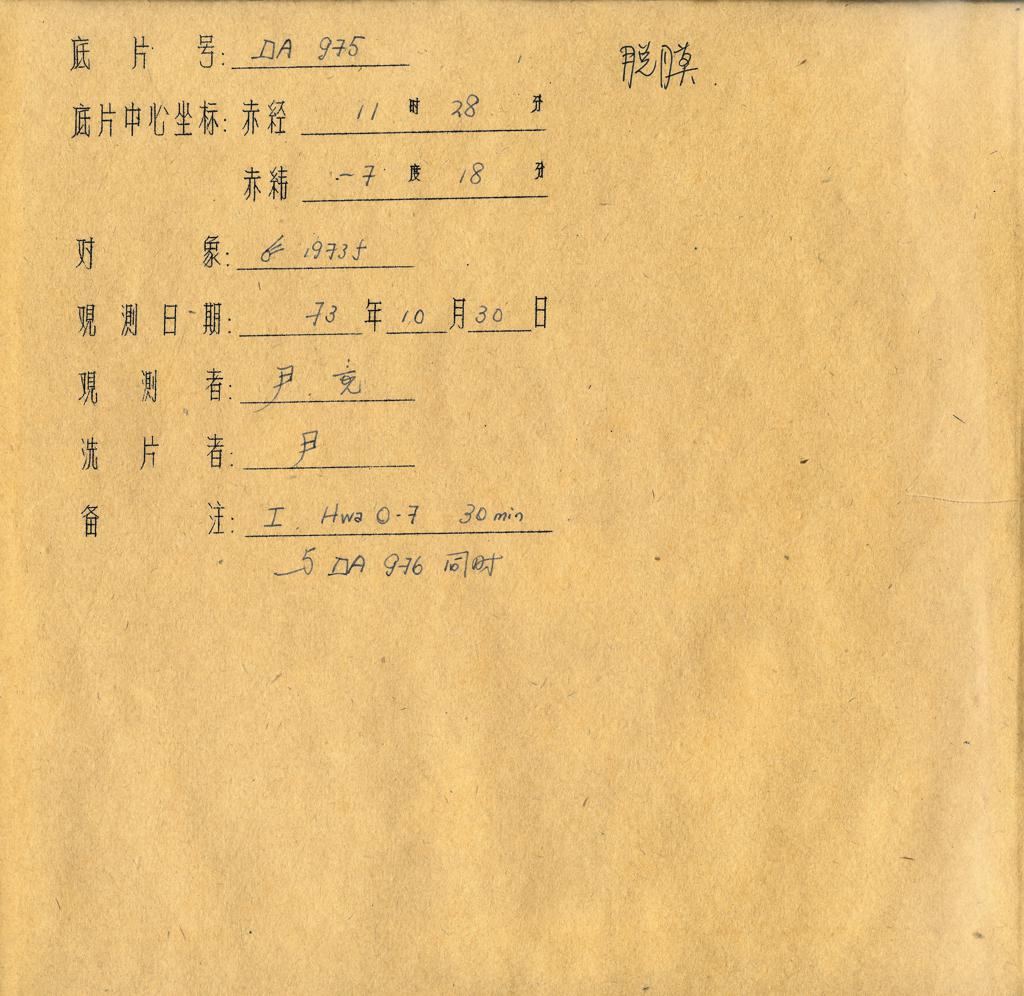 底片号: DA 975
脱膜
底片中心坐标: 赤经 11 时 28 分
赤纬 -7 度 18 分
对象: 1973f
观测日期: 73 年 10 月 30 日
观测者: 尹. 竞
洗片者: 尹
备注: I. Hwa O-7 30 min
与 DA 976 同时